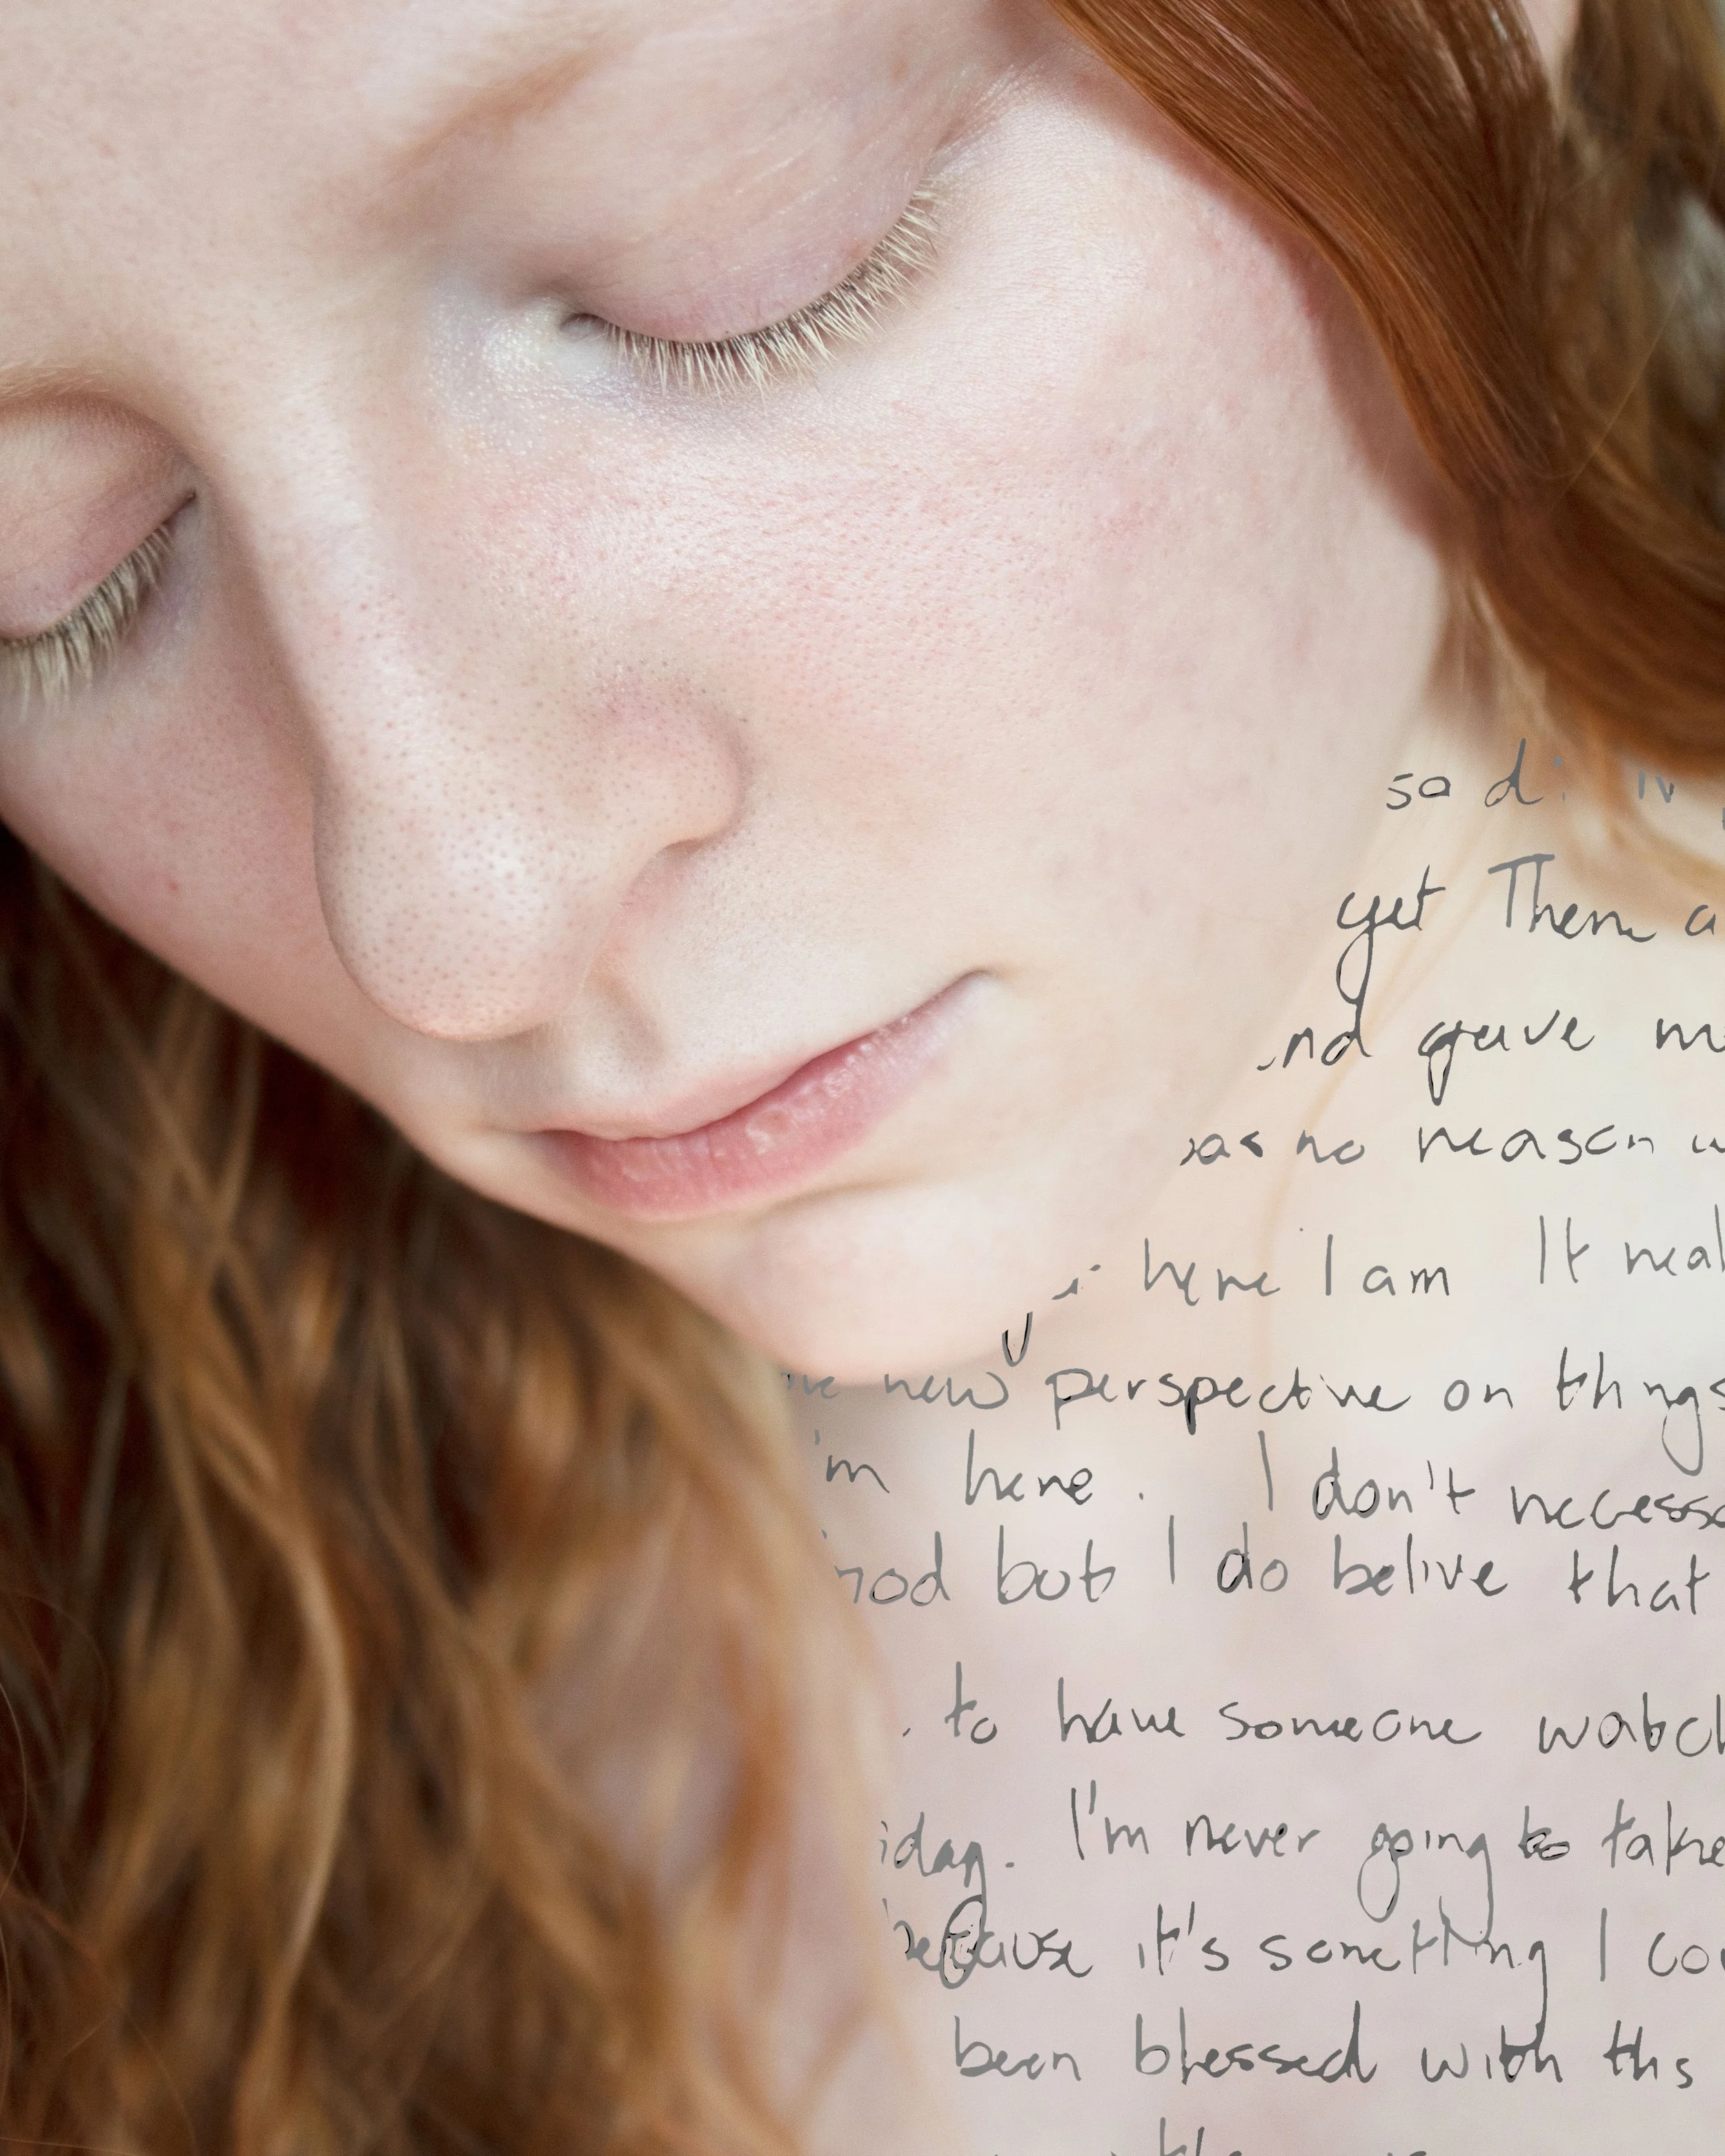 sad
yet There a
nd gave m
as no reason w
here I am It real
new perspective on things
'm here. I don't necessa
but I do belive that
to have someone watch
iday. I'm never going to take
because it's something I cou
been blessed with this